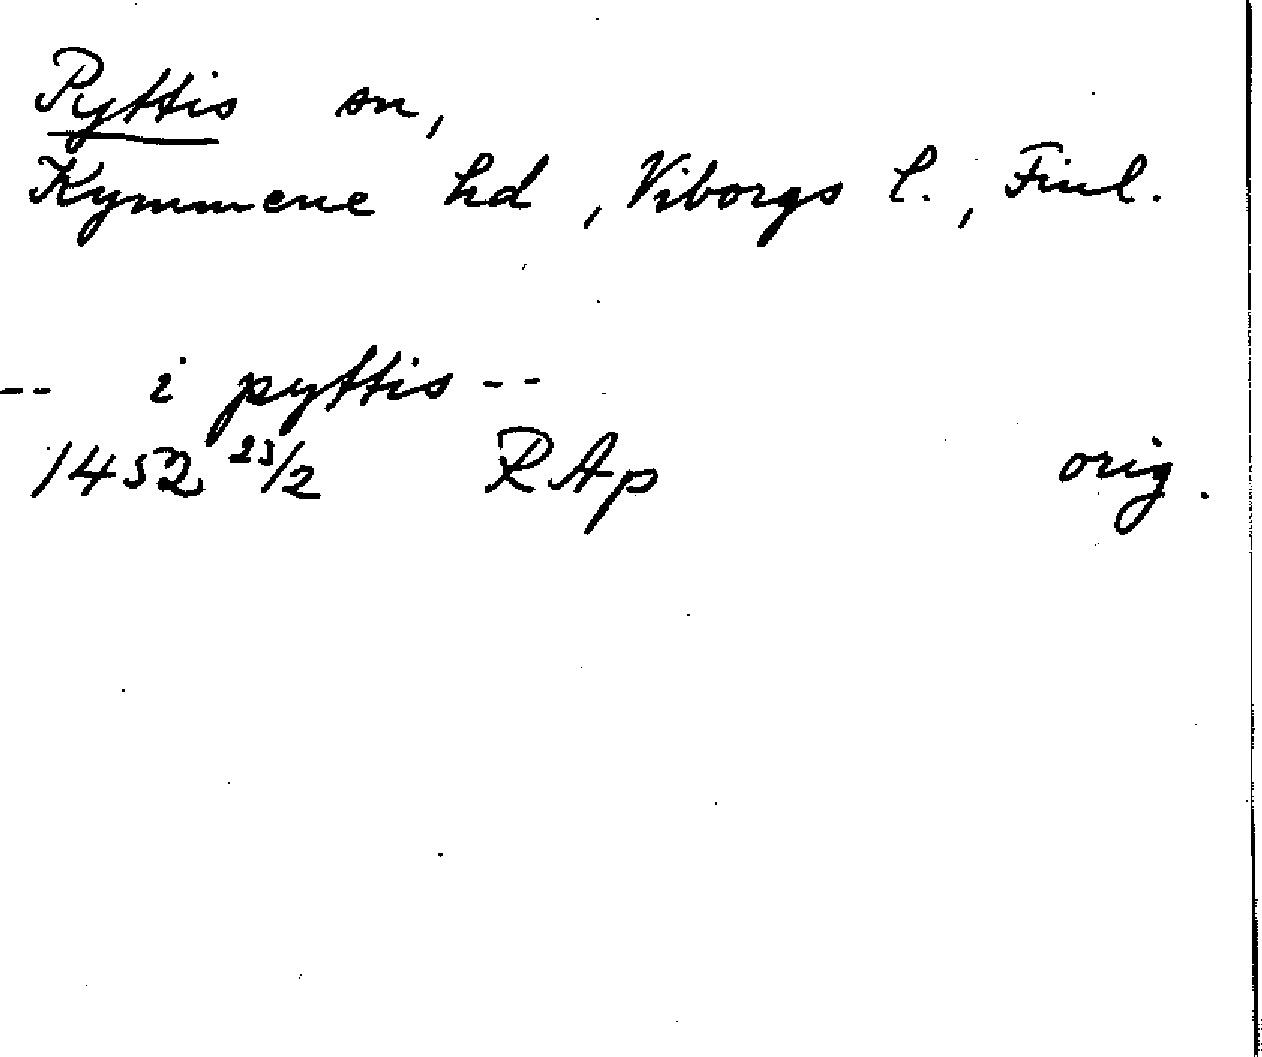 Pyttis sn,
Kymmene hd, Viborgs l., Finl.
-- i pyttis --
1452 23/2 RAp orig.